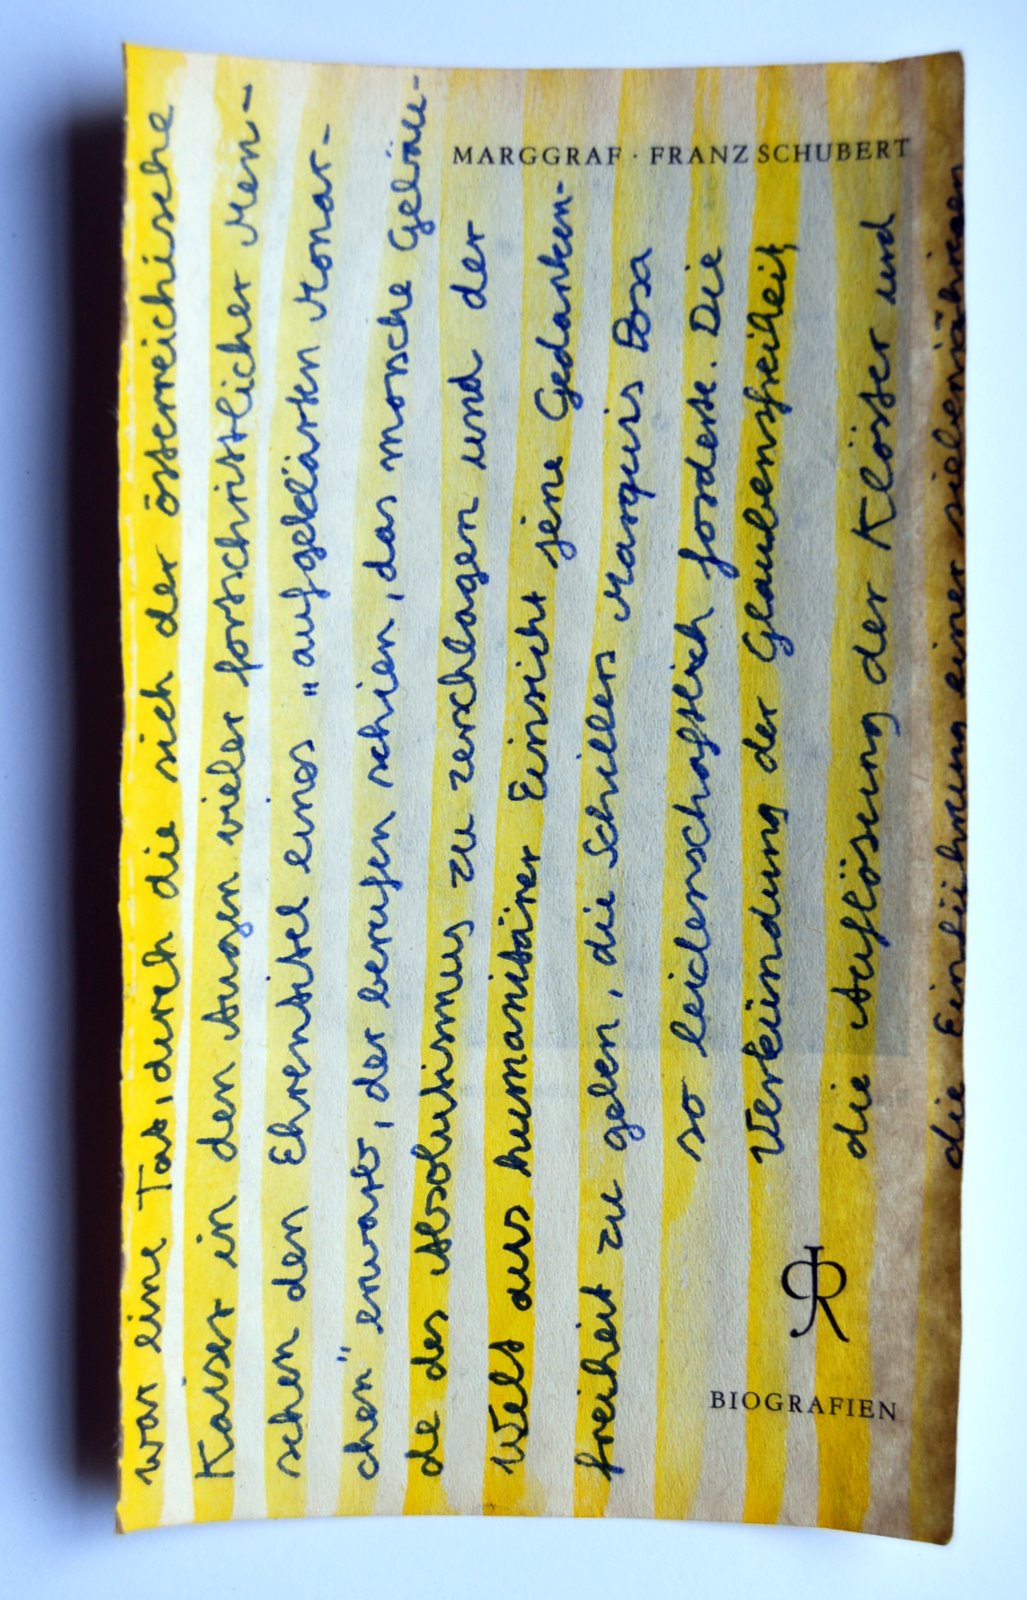 MARGGRAF · FRANZ SCHUBERT
war eine Tat, durch die sich der österreichische
Kaiser in den Augen vieler fortschrittlicher Men-
schen den Ehrentitel eines „aufgeklärten Monar-
chen" erwarb, der berufen schien, das morsche Gebäu-
de des Absolutismus zu zerschlagen und der
Welt aus humanitärer Einsicht jene Gedanken-
freiheit zu geben, die Schillers Marquis Posa
so leidenschaftlich forderte. Die
Verkündung der Glaubensfreiheit,
die Auflösung der Klöster und
die Einführung einer siebenjährigen
R
BIOGRAFIEN